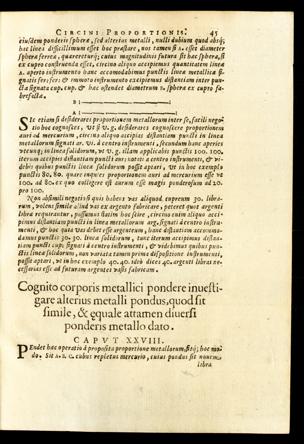 CIRCINI PROPORTIONIS. 45
eiusdem ponderis sphæra, sed alterius metalli, nulli dubium quod absq;
hoc linea difficillimum esset hoc præstare, nos tamen si A. esset diameter
sphæra ferrea, quæreretur; cuius magnitudinis futura sit hæc sphæra, si
ex cupro construenda esset, circino aliquo accipiemus quantitatem lineæ
A. aperto instrumento hanc accomodabimus punctis lineæ metallicæ si
gnatis fer: fer: & immoto instrumento excipiemus distantiam inter pun
cta signata cup. cup. & hæc ostendet diametrum B. sphæra ex cupro fa
brefacta.
B
A
SIc etiam si desiderares proportionem metallorum inter se, facili nego
tio hoc cognosces, ut si V. g. desiderares cognoscere proportionem
auri ad mercurium, circino aliquo accipies distantiam puncti in linea
metallorum signati ar. V. à centro instrumenti, secundum hanc aperies
utrunq; in linea solidorum, ut V. g. illam applicabis punctis 100. 100.
iterum accipies distantiam puncti aur; notati a centro instrumenti, & vi-
debis quibus punctis lineæ solidorum possit aptari, ut in hoc exemplo
punctis 80. 80. quare inquies proportionem auri ad mercurium esse ut
100. ad 80. ex quo colligere est aurum esse magis ponderosum ad 20.
pro 100.
Non absimili negotio si quis habens vas aliquod cupreum 30. libra-
rum, volens simile aliud vas ex argento fabricare, peteret quot argenti
libræ requirantur, possumus statim hoc scire, circino enim aliquo acci-
piemus distantiam puncti in linea metallorum arg. signati à centro instru-
menti, & hoc quia vas debet esse argenteum, hanc distantiam accommo-
damus punctis 30. 30. lineæ solidorum, tunc iterum accipiemus distan-
tiam puncti cup; signati à centro instrumenti, & videbimus quibus pun-
ctis lineæ solidorum, non variata tamen prima dispositione instrumenti,
possit aptari, ut in hoc exemplo 40. 40. ideò dices 40. argenti libras ne-
cessarias esse ad futurum argenteum vasis fabricam.
Cognito corporis metallici pondere inuesti-
gare alterius metalli pondus, quod sit
simile, & equale attamen diuersi
ponderis metallo dato.
CAPVT XXVIII.
PEndet hæc operatio à proposita proportione metallorum, sitq; hoc mo
do. Sit A. B. C. cubus repletus mercurio, cuius pondus sit nouem
libra